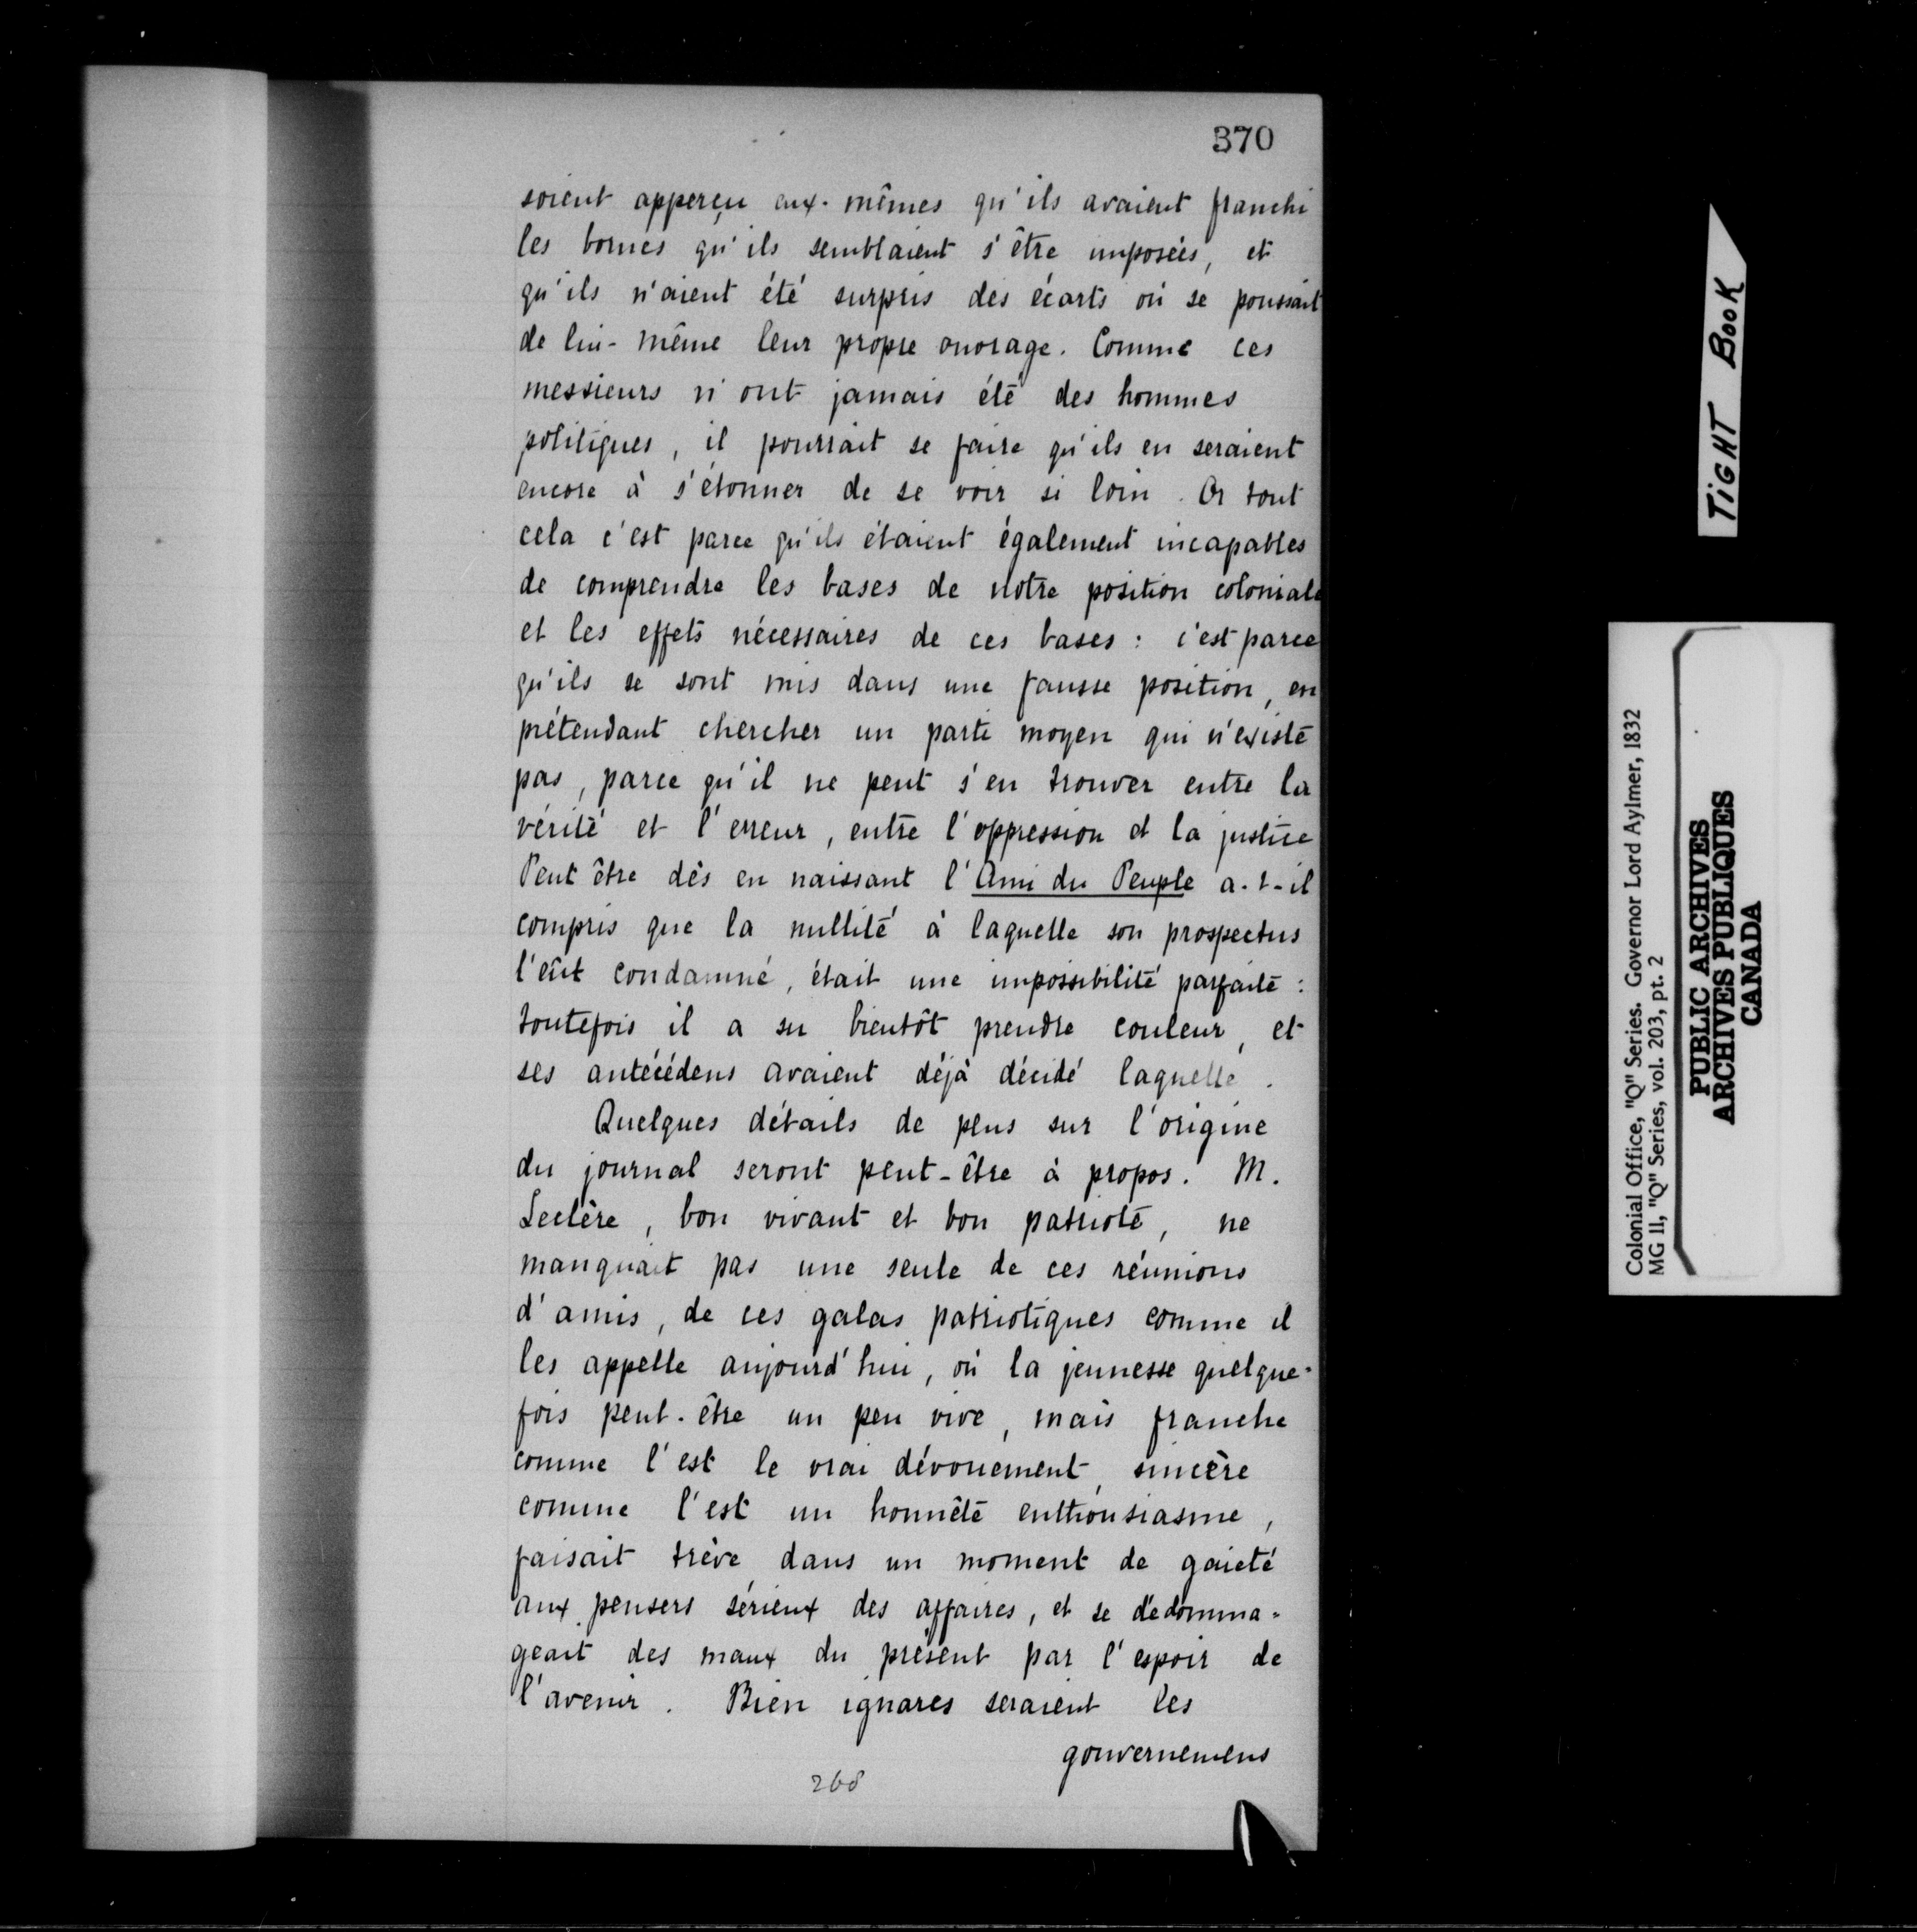 370
soient apperçu eux-mêmes qu'ils avaient franchi
les bornes qu'ils semblaient s'être imposées, et
qu'ils n'aient été surpris des écarts où se poussait
de lui-même leur propre ouvrage. Comme ces
messieurs n'ont jamais été des hommes
politiques, il pourrait se faire qu'ils en seraient
encore à s'étonner de se voir si loin. Or tout
cela c'est parce qu'ils étaient également incapables
de comprendre les bases de notre position coloniale
et les effets nécessaires de ces bases : c'est parce
qu'ils se sont mis dans une fausse position, en
prétendant chercher un parti moyen qui n'existe
pas, parce qu'il ne peut s'en trouver entre la
vérité et l'erreur, entre l'oppression et la justice
Peut être dès en naissant l'Ami du Peuple a-t-il
compris que la nullité à laquelle son prospectus
l'eût condamné, était une impossibilité parfaite :
toutefois il a su bientôt prendre couleur, et
ses antécédens avaient déjà décidé laquelle.
Quelques détails de plus sur l'origine
du journal seront peut-être à propos. M.
Leclère, bon vivant et bon patriote, ne
manquait pas une seule de ces réunions
d'amis, de ces galas patriotiques comme il
les appelle aujourd'hui, où la jeunesse quelque-
fois peut-être un peu vive, mais franche
comme l'est le vrai dévouement, sincère
comme l'est un honnête enthousiasme,
faisait trève dans un moment de gaieté
aux pensers sérieux des affaires, et se dédomma-
geait des maux du présent par l'espoir de
l'avenir. Bien ignares seraient les
gouvernemens
268
TIGHT BOOK
Colonial Office, "Q" Series. Governor Lord Aylmer, 1832
MG 11, "Q" Series, vol. 203, pt. 2
PUBLIC ARCHIVES
ARCHIVES PUBLIQUES
CANADA